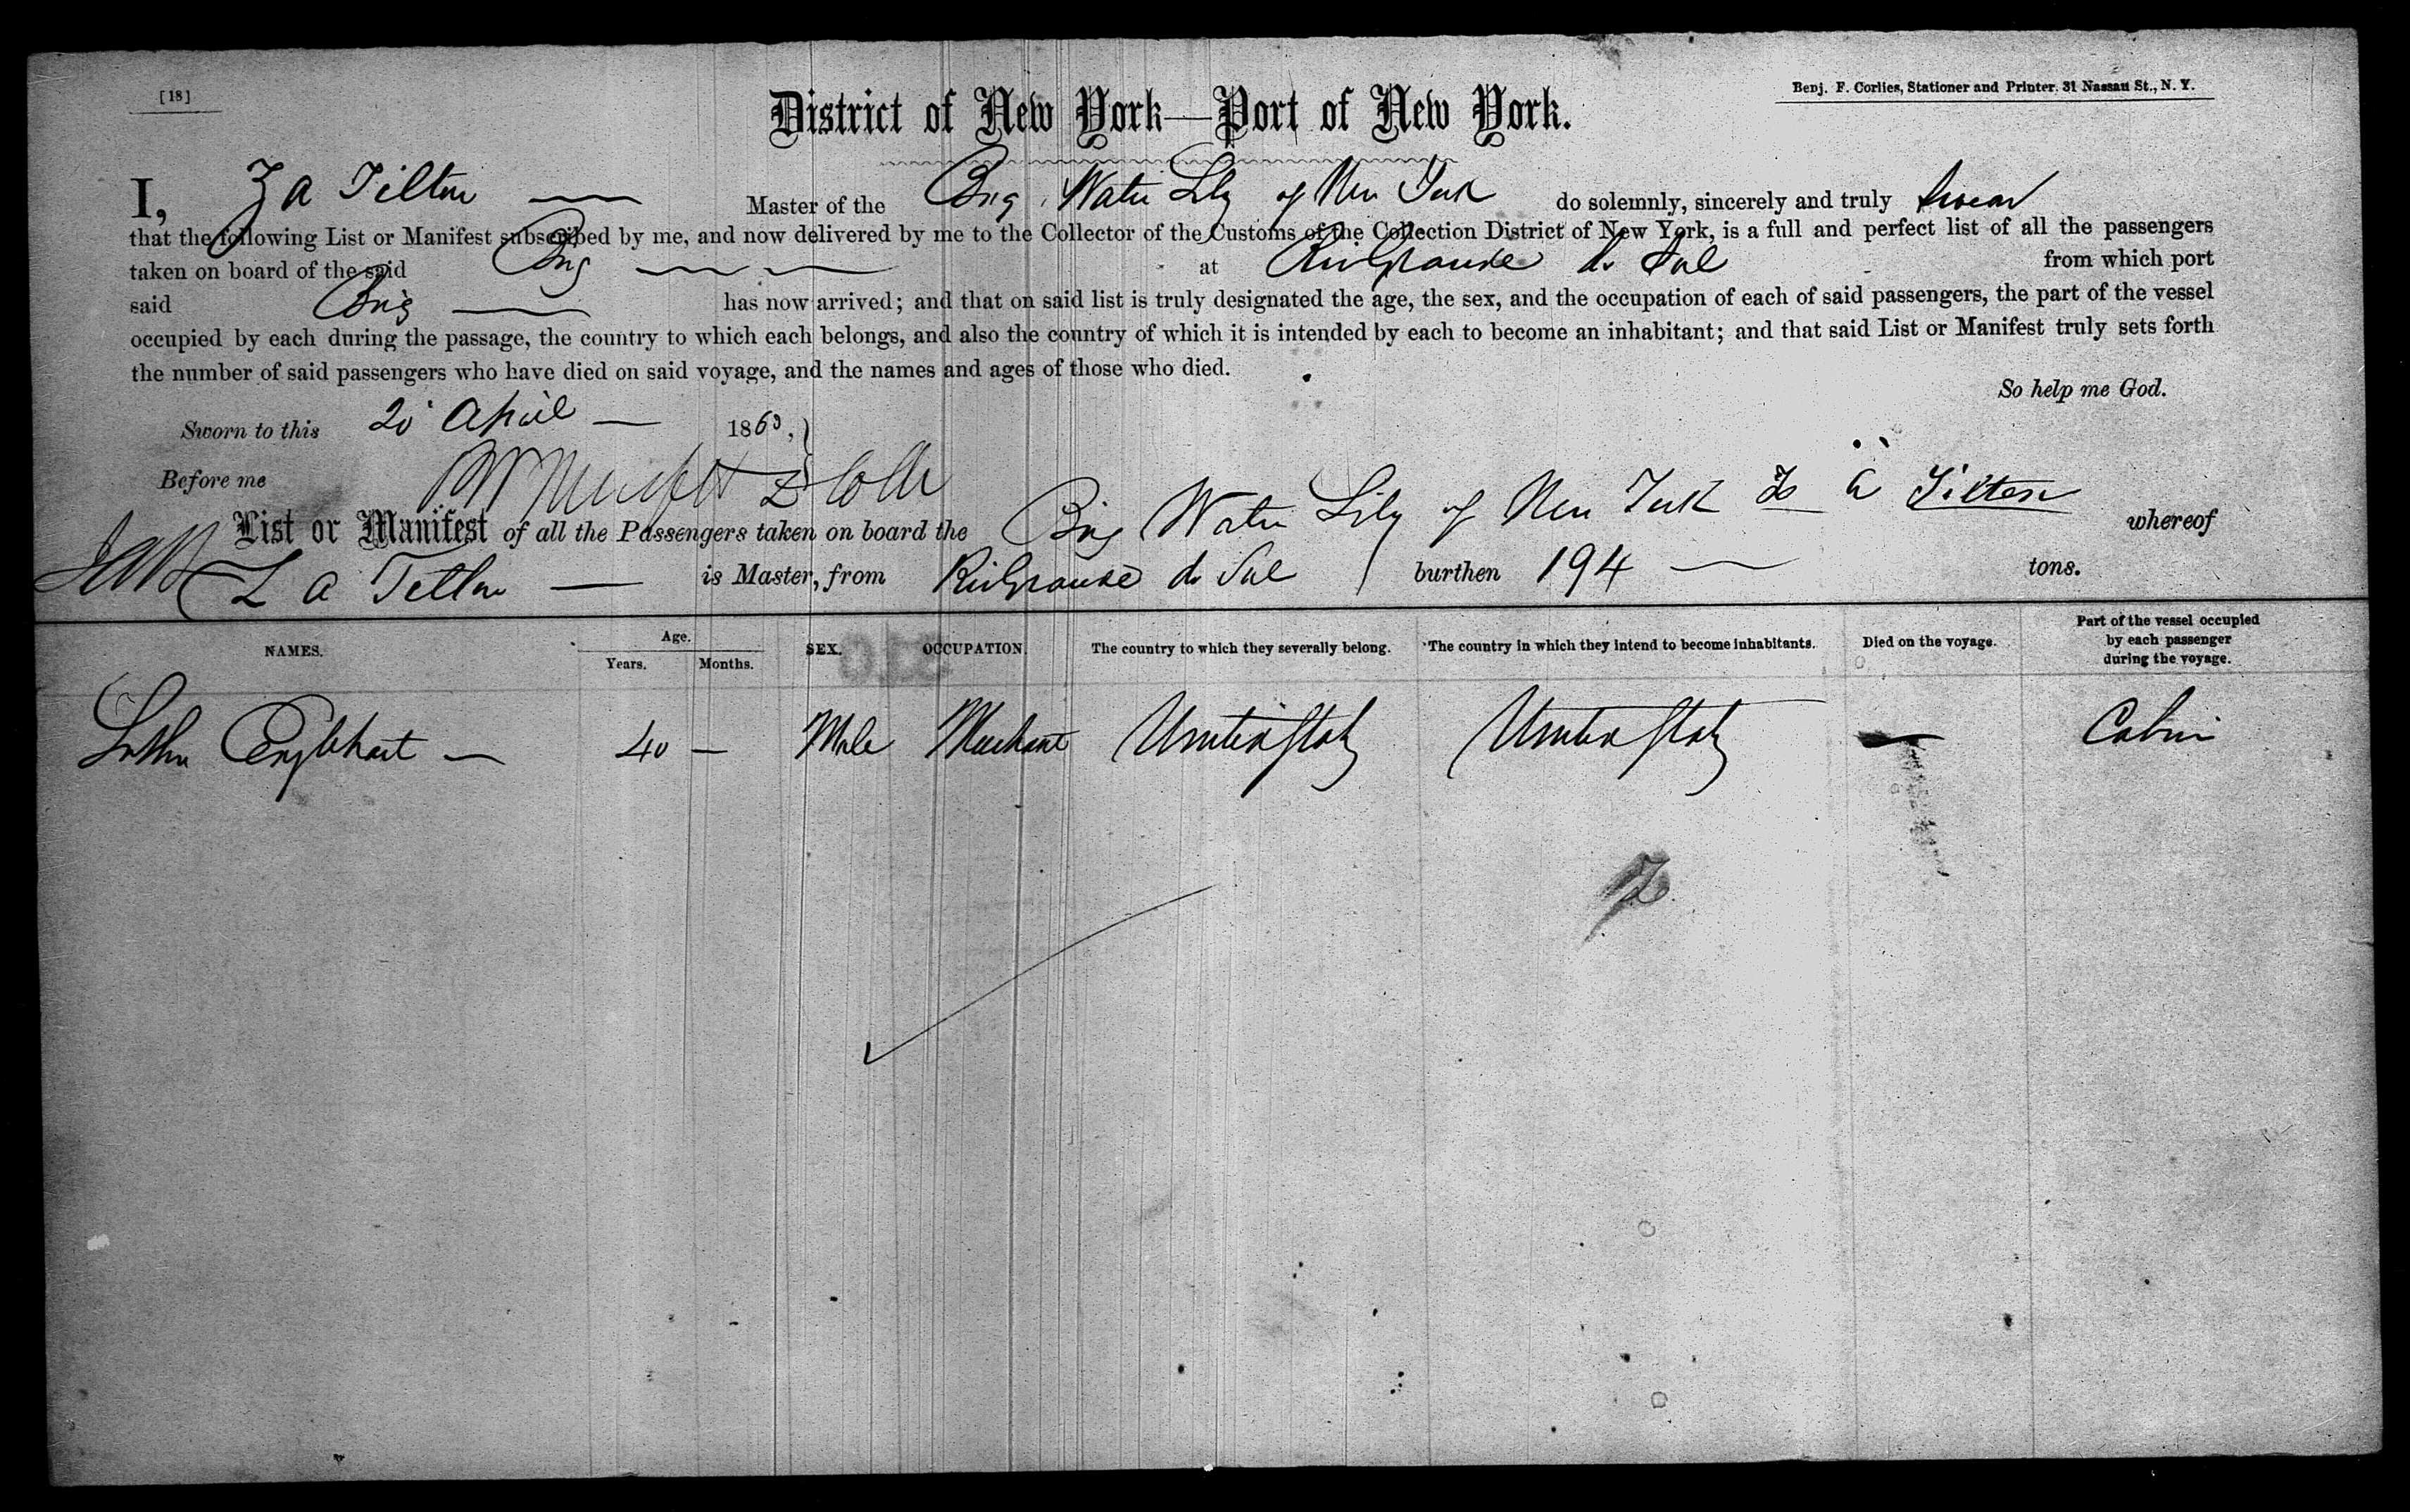 [18]
Benj. F. Corlies, Stationer and Printer. 31 Nassau St., N. Y.
District of New York—Port of New York.
I, Z A Tilton — Master of the Brig Water Lily of New York do solemnly, sincerely and truly swear
that the following List or Manifest subscribed by me, and now delivered by me to the Collector of the Customs of the Collection District of New York, is a full and perfect list of all the passengers
taken on board of the said Brig — — at Rio Grande do Sul from which port
said Brig — has now arrived; and that on said list is truly designated the age, the sex, and the occupation of each of said passengers, the part of the vessel
occupied by each during the passage, the country to which each belongs, and also the country of which it is intended by each to become an inhabitant; and that said List or Manifest truly sets forth
the number of said passengers who have died on said voyage, and the names and ages of those who died.
So help me God.
Sworn to this 20 April — 1863,
Before me
List or Manifest of all the Passengers taken on board the Brig Water Lily of New York Tilton whereof
Z A Tilton — is Master, from Rio Grande do Sul burthen 194 — tons.
NAMES. Age. Years. Months. SEX. OCCUPATION. The country to which they severally belong. The country in which they intend to become inhabitants. Died on the voyage. Part of the vessel occupied by each passenger during the voyage.
Luther Englehart — 40 — Male Merchant United States United States — Cabin